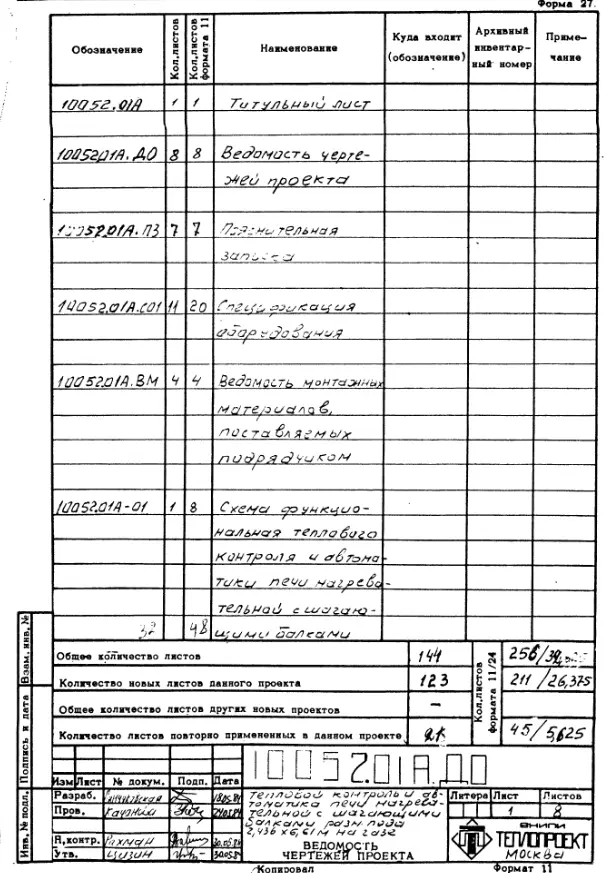 Форма 27.
Обозначение Кол.листов Кол.листов формата 11 Наименование Куда входит (обозначение) Архивный инвентар-ный номер Приме-чание
10052.01А 1 1 Титульный лист
10052.01А.ДО 8 8 Ведомость черте-
жей проекта
10052.01А.ПЗ 7 7 Пояснительная
записка
10052.01А.СО1 11 20 Спецификация
оборудования
10052.01А.ВМ 4 4 Ведомость монтажных
материалов,
поставляемых
подрядчиком
10052.01А-01 1 8 Схема функцио-
нальная теплового
контроля и автома-
тики печи нагрева-
тельной с шагаю-
32 48 щими балками
Общее количество листов 144 Кол.листов формата 11/24 256/
Количество новых листов данного проекта 123 211/26,375
Общее количество листов других новых проектов –
Количество листов повторно примененных в данном проекте 21 45/5,625
Взам.инв.№
Подпись и дата
Инв.№ подл.
10052.01А.ДО
Изм Лист № докум. Подп. Дата
Разраб.
Пров.
Н.контр. Рахман
Утв. Цизин
Тепловой контроль и ав-
томатика печи нагрева-
тельной с шагающими
балками разм. пода
2,436 х 6,61 м на газе
ВЕДОМОСТЬ
ЧЕРТЕЖЕЙ ПРОЕКТА
Литера Лист Листов
1 8
ВНИПИ
ТЕПЛОПРОЕКТ
МОСКВА
Копировал Формат 11